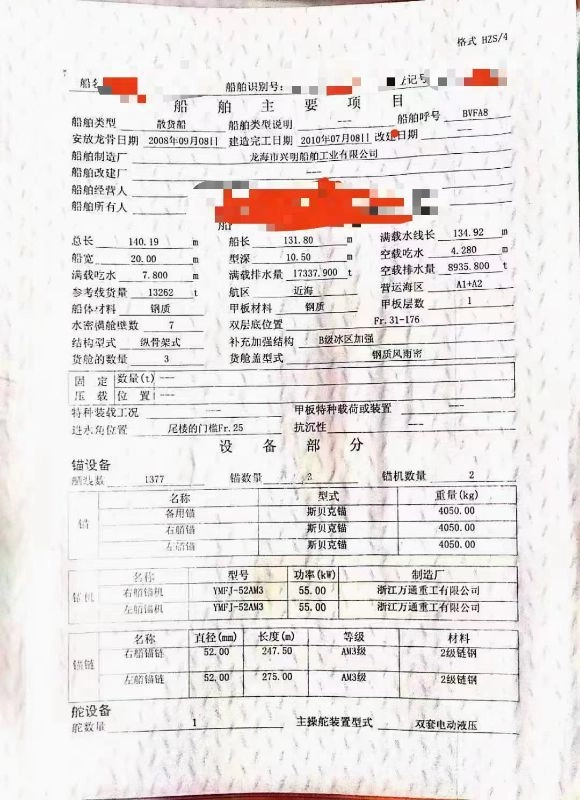 格式 HZS/4
船名 船舶识别号: 登记号
船 舶 主 要 项 目
船舶类型 散货船 船舶类型说明 --- 船舶呼号 BVFA8
安放龙骨日期 2008年09月08日 建造完工日期 2010年07月08日 改建日期
船舶制造厂 龙海市兴明船舶工业有限公司
船舶改建厂 ---
船舶经营人
船舶所有人
船
总长 140.19 m 船长 131.80 m 满载水线长 134.92 m
船宽 20.00 m 型深 10.50 m 空载吃水 4.280 m
满载吃水 7.800 m 满载排水量 17337.900 t 空载排水量 8935.800 t
参考载货量 13262 t 航区 近海 营运海区 A1+A2
船体材料 钢质 甲板材料 钢质 甲板层数 1
水密横舱壁数 7 双层底位置 Fr.31-176
结构型式 纵骨架式 补充加强结构 B级冰区加强
货舱的数量 3 货舱盖型式 钢质风雨密
固 定 数量(t) ---
压 载 位置 ---
特种装载工况 --- 甲板特种载荷或装置 ---
进水角位置 尾楼的门槛Fr.25 抗沉性 ---
设 备 部 分
锚设备
舾装数 1377 锚数量 3 锚机数量 2
锚
名称 型式 重量(kg)
备用锚 斯贝克锚 4050.00
右船锚 斯贝克锚 4050.00
左船锚 斯贝克锚 4050.00
锚机
名称 型号 功率(kW) 制造厂
右船锚机 YMFJ-52AM3 55.00 浙江万通重工有限公司
左船锚机 YMFJ-52AM3 55.00 浙江万通重工有限公司
锚链
名称 直径(mm) 长度(m) 等级 材料
右船锚链 52.00 247.50 AM3级 2级链钢
左船锚链 52.00 275.00 AM3级 2级链钢
舵设备
舵数量 1 主操舵装置型式 双套电动液压